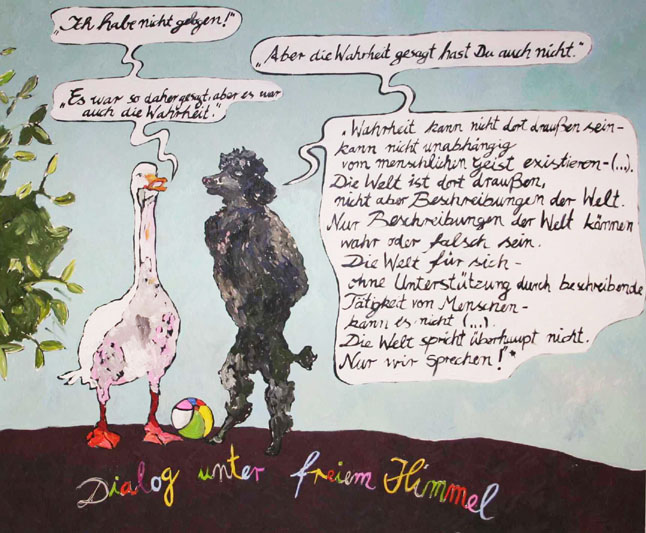 „Ich habe nicht gelogen!“
„Aber die Wahrheit gesagt hast Du auch nicht.“
„Es war so dahergesagt, aber es war
auch die Wahrheit.“
„Wahrheit kann nicht dort draußen sein-
kann nicht unabhängig
vom menschlichen Geist existieren-(...).
Die Welt ist dort draußen,
nicht aber Beschreibungen der Welt.
Nur Beschreibungen der Welt können
wahr oder falsch sein.
Die Welt für sich-
ohne Unterstützung durch beschreibende
Tätigkeit von Menschen-
kann es nicht (...).
Die Welt spricht überhaupt nicht.
Nur wir sprechen!“*
Dialog unter freiem Himmel